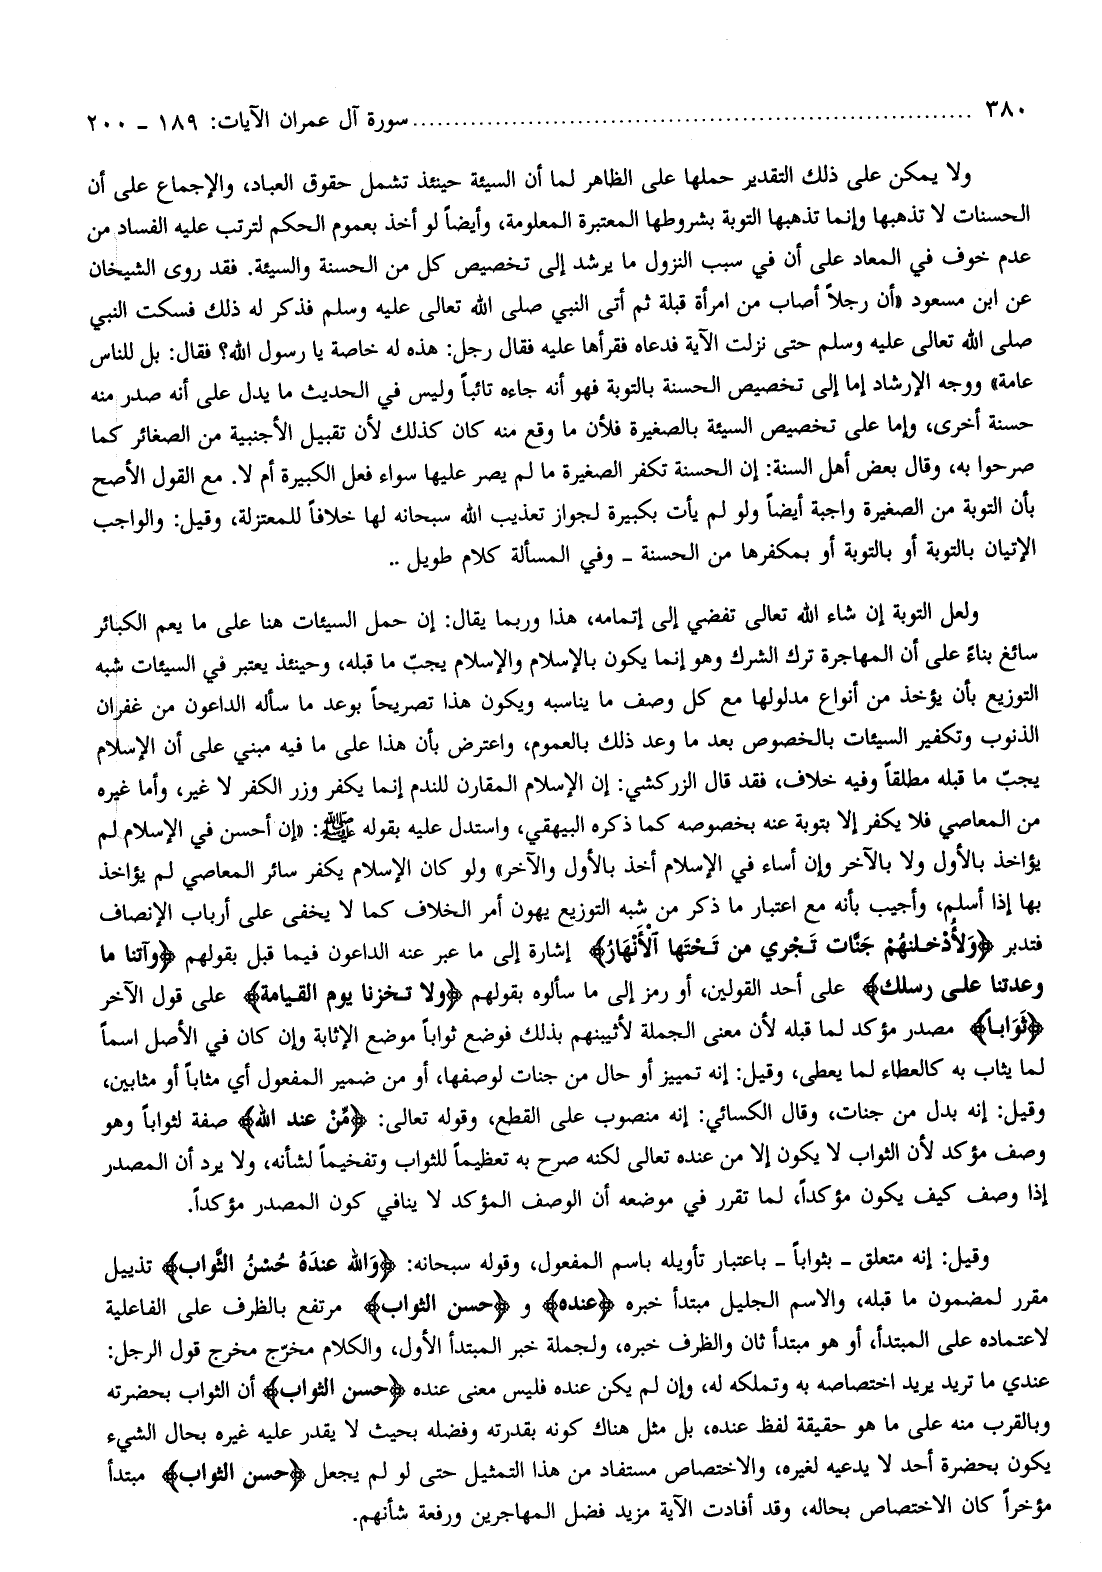 ٣٨٠ ........................................ سورة آل عمران الآيات: ١٨٩ ـ ٢٠٠
ولا يمكن على ذلك التقدير حملها على الظاهر لما أن السيئة حينئذ تشمل حقوق العباد، والإجماع على أن
الحسنات لا تذهبها وإنما تذهبها التوبة بشروطها المعتبرة المعلومة، وأيضاً لو أخذ بعموم الحكم لترتب عليه الفساد من
عدم خوف في المعاد على أن في سبب النزول ما يرشد إلى تخصيص كل من الحسنة والسيئة. فقد روى الشيخان
عن ابن مسعود «أن رجلاً أصاب من امرأة قبلة ثم أتى النبي صلى الله تعالى عليه وسلم فذكر له ذلك فسكت النبي
صلى الله تعالى عليه وسلم حتى نزلت الآية فدعاه فقرأها عليه فقال رجل: هذه له خاصة يا رسول الله؟ فقال: بل للناس
عامة» ووجه الإرشاد إما إلى تخصيص الحسنة بالتوبة فهو أنه جاءه تائباً وليس في الحديث ما يدل على أنه صدر منه
حسنة أخرى، وإما على تخصيص السيئة بالصغيرة فلأن ما وقع منه كان كذلك لأن تقبيل الأجنبية من الصغائر كما
صرحوا به، وقال بعض أهل السنة: إن الحسنة تكفر الصغيرة ما لم يصر عليها سواء فعل الكبيرة أم لا. مع القول الأصح
بأن التوبة من الصغيرة واجبة أيضاً ولو لم يأت بكبيرة لجواز تعذيب الله سبحانه لها خلافاً للمعتزلة، وقيل: والواجب
الإتيان بالتوبة أو بالتوبة أو بمكفرها من الحسنة ـ وفي المسألة كلام طويل ..
ولعل التوبة إن شاء الله تعالى تفضي إلى إتمامه، هذا وربما يقال: إن حمل السيئات هنا على ما يعم الكبائر
سائغ بناءً على أن المهاجرة ترك الشرك وهو إنما يكون بالإسلام والإسلام يجبّ ما قبله، وحينئذ يعتبر في السيئات شبه
التوزيع بأن يؤخذ من أنواع مدلولها مع كل وصف ما يناسبه ويكون هذا تصريحاً بوعد ما سأله الداعون من غفران
الذنوب وتكفير السيئات بالخصوص بعد ما وعد ذلك بالعموم، واعترض بأن هذا على ما فيه مبني على أن الإسلام
يجبّ ما قبله مطلقاً وفيه خلاف، فقد قال الزركشي: إن الإسلام المقارن للندم إنما يكفر وزر الكفر لا غير، وأما غيره
من المعاصي فلا يكفر إلا بتوبة عنه بخصوصه كما ذكره البيهقي، واستدل عليه بقوله ﷺ: «إن أحسن في الإسلام لم
يؤاخذ بالأول ولا بالآخر وإن أساء في الإسلام أخذ بالأول والآخر» ولو كان الإسلام يكفر سائر المعاصي لم يؤاخذ
بها إذا أسلم، وأجيب بأنه مع اعتبار ما ذكر من شبه التوزيع يهون أمر الخلاف كما لا يخفى على أرباب الإنصاف
فتدبر ﴿وَلأُدْخلنهُمْ جَنَّات تَجْري من تَحْتَها ٱلْأَنْهَارُ﴾ إشارة إلى ما عبر عنه الداعون فيما قبل بقولهم ﴿وآتنا ما
وعدتنا على رسلك﴾ على أحد القولين، أو رمز إلى ما سألوه بقولهم ﴿ولا تخزنا يوم القيامة﴾ على قول الآخر
﴿ثَوَاباً﴾ مصدر مؤكد لما قبله لأن معنى الجملة لأثيبنهم بذلك فوضع ثواباً موضع الإثابة وإن كان في الأصل اسماً
لما يثاب به كالعطاء لما يعطى، وقيل: إنه تمييز أو حال من جنات لوصفها، أو من ضمير المفعول أي مثاباً أو مثابين،
وقيل: إنه بدل من جنات، وقال الكسائي: إنه منصوب على القطع، وقوله تعالى: ﴿مِّنْ عند الله﴾ صفة لثواباً وهو
وصف مؤكد لأن الثواب لا يكون إلا من عنده تعالى لكنه صرح به تعظيماً للثواب وتفخيماً لشأنه، ولا يرد أن المصدر
إذا وصف كيف يكون مؤكداً، لما تقرر في موضعه أن الوصف المؤكد لا ينافي كون المصدر مؤكداً.
وقيل: إنه متعلق ـ بثواباً ـ باعتبار تأويله باسم المفعول، وقوله سبحانه: ﴿وَالله عندَهُ حُسْنُ الثَّواب﴾ تذييل
مقرر لمضمون ما قبله، والاسم الجليل مبتدأ خبره ﴿عنده﴾ و ﴿حسن الثواب﴾ مرتفع بالظرف على الفاعلية
لاعتماده على المبتدأ، أو هو مبتدأ ثان والظرف خبره، ولجملة خبر المبتدأ الأول، والكلام مخرّج مخرج قول الرجل:
عندي ما تريد يريد اختصاصه به وتملكه له، وإن لم يكن عنده فليس معنى عنده ﴿حسن الثواب﴾ أن الثواب بحضرته
وبالقرب منه على ما هو حقيقة لفظ عنده، بل مثل هناك كونه بقدرته وفضله بحيث لا يقدر عليه غيره بحال الشيء
يكون بحضرة أحد لا يدعيه لغيره، والاختصاص مستفاد من هذا التمثيل حتى لو لم يجعل ﴿حسن الثواب﴾ مبتدأ
مؤخراً كان الاختصاص بحاله، وقد أفادت الآية مزيد فضل المهاجرين ورفعة شأنهم.